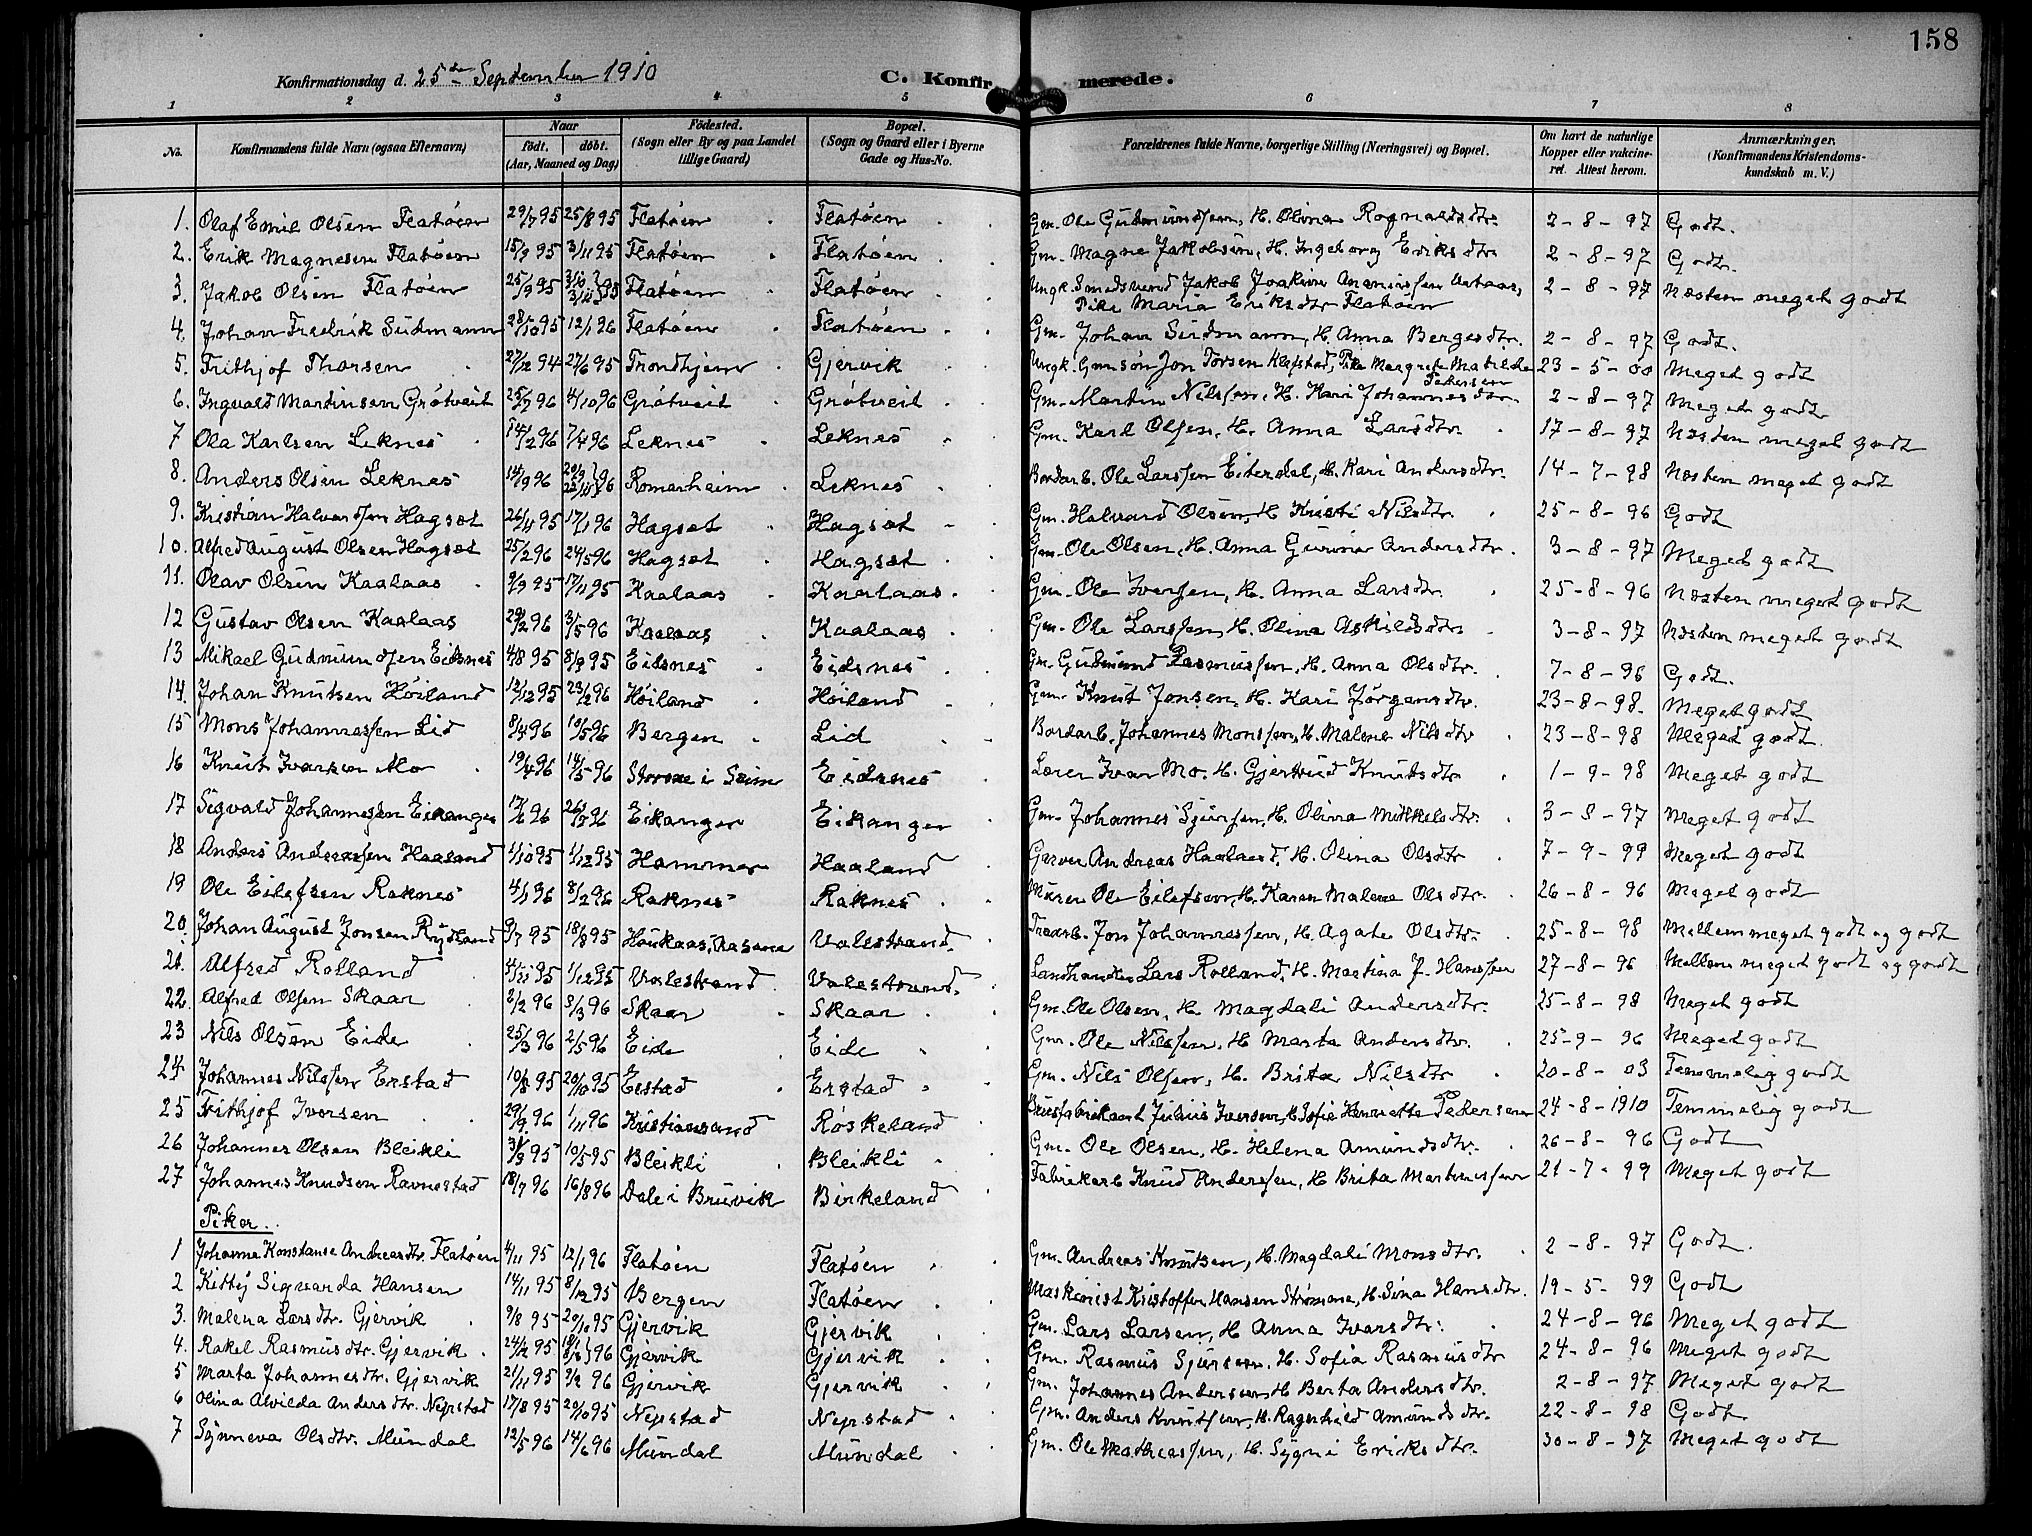 158
Konfirmationsdag d. 25de September 1910 C. Konfirmerede.
1 2 3 4 5 6 7 8
No. Konfirmandens fulde Navn (ogsaa Efternavn) Naar födt. döbt. (Aar, Maaned og Dag) Födested. (Sogn eller By og paa Landet tillige Gaard) Bopæl. (Sogn og Gaard eller i Byerne Gade og Hus-No. Forældrenes fulde Navne, borgerlige Stilling (Næringsvei) og Bopæl. Om havt de naturlige Kopper eller vaccineret. Attest herom. Anmærkninger. (Konfirmandens Kristendomskundskab m. V.)
1. Olaf Emil Olsen Flatøen 29/7 95 25/8 95 Flatøen Flatøen Gm. Ole Gudmundssen, H. Olina Rognaldsdtr. 2-8-97 Godt.
2. Erik Magnesen Flatøen 15/9 95 3/11 95 Flatøen Flatøen Gm. Magne Jakobsen, H. Ingeborg Eriksdtr. 2-8-97 Godt.
3. Jakob Olsen Flatøen 25/9 95 Flatøen Flatøen Ungk. Smedsvend Jakob Joakim
Pike Maria Eriksdtr Flatøen 2-8-97 Næsten meget godt
4. Johan Fredrik Sudmann 28/10 95 12/1 96 Flatøen Flatøen Gm. Johan Sudmann, H. Anna Bergesdtr. 2-8-97 Godt.
5. Frithjof Thorsen 27/12 94 27/6 95 Trondhjem Gjervik Ungk. Gmsøn Jon Torsen Klefstad, Pike Margrete Matilde Pedersen 23-5-00 Meget godt
6. Ingvald Martinsen Grøtveit 25/7 96 4/10 96 Grøtveit Grøtveit Gm. Martin Nilssen, H. Kari Johannesdtr. 2-8-97 Meget godt
7 Ola Karlsen Leknes 14/2 96 7/4 96 Leknes Leknes Gm. Karl Olsen, H. Anna Larsdtr. 17-8-97 Næsten meget godt
8. Anders Olsen Leknes 14/9 96 Romarheim Leknes Bordarb. Ole Larssen Eiterdal, H. Kari Andersdtr. 14-7-98 Næsten meget godt
9. Kristian Halvardsen Hagset 26/11 95 17/1 96 Hagset Hagset Gm. Halvard Olsen, H Kristi Nilsdtr. 25-8-96 Godt
10. Alfred August Olsen Hagset 25/2 96 24/5 96 Hagset Hagset Gm. Ole Olsen, H. Anna Gurina Andersdtr. 3-8-97 Meget godt
11. Olav Olsen Kaalaas 9/9 95 17/11 95 Kaalaas Kaalaas Gm. Ole Iversen, H. Anna Larsdtr. 25-8-96 Næsten meget godt
12 Gustav Olsen Kaalaas 29/2 96 3/5 96 Kaalaas Kaalaas Gm. Ole Larssen, H. Olina Askildsdtr. 3-8-97 Næsten meget godt
13 Mikael Gudmundsen Eidsnes 4/8 95 8/9 95 Eidsnes Eidsnes Gm. Gudmund Rasmussen, H. Anna Olsdtr. 7-8-96 Godt.
14. Johan Knutsen Høiland 12/12 95 23/2 96 Høiland Høiland Gm. Knut Jonsen, H. Kari Jørgensdtr. 23-8-98 Meget godt
15 Mons Johannessen Lid 8/4 96 10/5 96 Bergen Lid Bordarb. Johannes Monssen, H. Malene Nilsdtr 23-8-98 Meget godt.
16 Knut Ivarsen Mo 19/4 96 14/5 96 i Seim Eidsnes Lærer Ivar Mo. H. Gjertrud Knutsdtr 1-9-98 Meget godt
17 Sigvald Johannessen Eikanger 17/6 96 26/7 96 Eikanger Eikanger Gm. Johannes Sjursen, H. Olina Mikkelsdtr. 3-8-97 Meget godt
18 Anders Andreassen Haaland 1/10 95 1/12 95 Hammer Haaland Garver Andreas Haaland, H. Olina Olsdtr 7-9-99 Meget godt
19 Ole Eilefsen Raknes 4/1 96 8/2 96 Raknes Raknes Murer Ole Eilefsen, H. Karen Malene Olsdtr. 26-8-96 Meget godt
20. Johan August Jonsen Rydland 9/7 95 18/8 95 Haukaas, Aasane Valestrand. Jon Johannessen, H. Agate Olsdtr. 25-8-98 Mellem meget godt og godt
21. Alfred Rolland 4/11 95 1/12 95 Valestrand Valestrand. Landhandler Lars Rolland, H. Martina J. Hanssen 27-8-96 Mellem meget godt og godt
22. Alfred Olsen Skaar 2/2 96 8/3 96 Skaar Skaar Gm. Ole Olsen, H. Magdali Andersdtr. 25-8-98 Meget godt
23 Nils Olsen Eide 25/3 96 2/5 96 Eide Eide Gm. Ole Nilssen, H Marta Andersdtr. 25-9-96 Meget godt
24 Johannes Nilssen Erstad 10/8 95 20/10 95 Erstad Erstad Gm. Nils Olsen, H. Brita Nilsdtr 20-8-03 Temmelig godt
25 Frithjof Iversen 29/9 96 1/11 96 Kristiansand Røskeland Julius Iversen, H. Sofie Henriette Pedersen 24-8-1910 Temmelig godt
26 Johannes Olsen Bleikli 31/3 95 10/5 95 Bleikli Bleikli Gm. Ole Olsen, H. Helena Amundsdtr. 26-8-96 Godt
27 Johannes Knudsen Ravnestad 18/7 96 16/8 96 Dale i Bruvik Birkeland Fabrikarb Knud Anderssen, H Brita Martinussen 21-7-99 Meget godt
Piker.
1 Johanna Konstanse Andreasdtr. Flatøen 4/11 95 12/1 96 Flatøen Flatøen Gm. Andreas Knutsen, H. Magdali Monsdtr. 2-8-97 Godt.
2 Kitty Sigvarda Hansen 14/11 95 8/12 95 Bergen Flatøen Maskinist Kristoffer Hansen Strømme, H. Sina Hansdtr. 19-5-99 Godt
3. Malena Larsdtr. Gjervik 9/8 95 20/10 95 Gjervik Gjervik Gm. Lars Larsen, H Anna Ivarsdtr. 24-8-96 Meget godt
4. Rakel Rasmusdtr. Gjervik 24/12 95 Gjervik Gjervik Gm. Rasmus Sjursen, H. Sofia Rasmusdtr 24-8-96 Meget godt
5 Marta Johannesdtr. Gjervik 21/11 95 2/2 96 Gjervik Gjervik Gm. Johannes Andersen, H Berta Andersdtr. 2-8-97 Meget godt
6 Olina Alvilda Andersdtr. Nepstad 17/8 95 20/10 95 Nepstad Nepstad Gm. Anders Knutsen, H. Ragnhild Amundsdtr. 22-8-98 Godt
7 Synneva Olsdtr. Mundal 12/5 96 14/6 96 Mundal Mundal Gm. Ole Mathiassen, H. Sygni Eriksdtr. 30-8-97 Meget godt